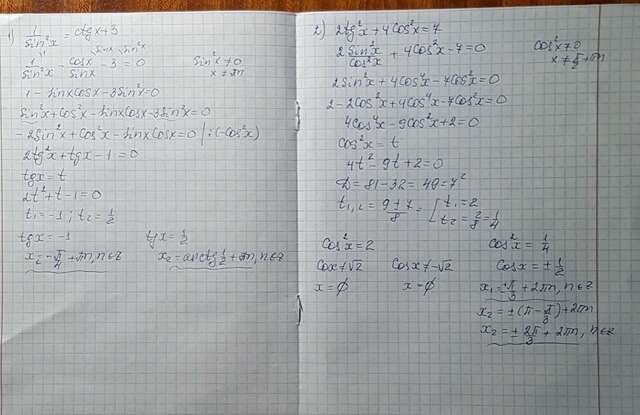 1) 1/sin²x = ctgx + 3
sinx sin²x
1/sin²x - cosx/sinx - 3 = 0 sin²x ≠ 0
x ≠ πn
1 - sinxcosx - 3sin²x = 0
sin²x + cos²x - sinxcosx - 3sin²x = 0
-2sin²x + cos²x - sinxcosx = 0 | :(-cos²x)
2tg²x + tgx - 1 = 0
tgx = t
2t² + t - 1 = 0
t₁ = -1; t₂ = 1/2
tgx = -1 tgx = 1/2
x₁ = -π/4 + πn, n∈z x₂ = arctg 1/2 + πn, n∈z
2) 2tg²x + 4cos²x = 7
2 sin²x/cos²x + 4cos²x - 7 = 0 cos²x ≠ 0
x ≠ π/2 + πn
2sin²x + 4cos⁴x - 7cos²x = 0
2 - 2cos²x + 4cos⁴x - 7cos²x = 0
4cos⁴x - 9cos²x + 2 = 0
cos²x = t
4t² - 9t + 2 = 0
D = 81 - 32 = 49 = 7²
t₁,₂ = (9 ± 7)/8 = [ t₁ = 2
t₂ = 2/8 = 1/4
cos²x = 2 cos²x = 1/4
cosx ≠ √2 cosx ≠ -√2 cosx = ± 1/2
x = ∅ x = ∅ x₁ = ± π/3 + 2πn, n∈z
x₂ = ±(π - π/3) + 2πn
x₂ = ± 2π/3 + 2πn, n∈z